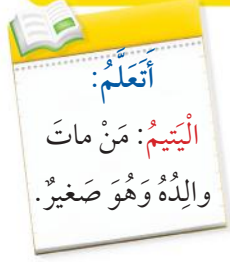 أَتَعَلَّمُ:
الْيَتيمُ: مَنْ ماتَ
والِدُهُ وَهُوَ صَغيرٌ.